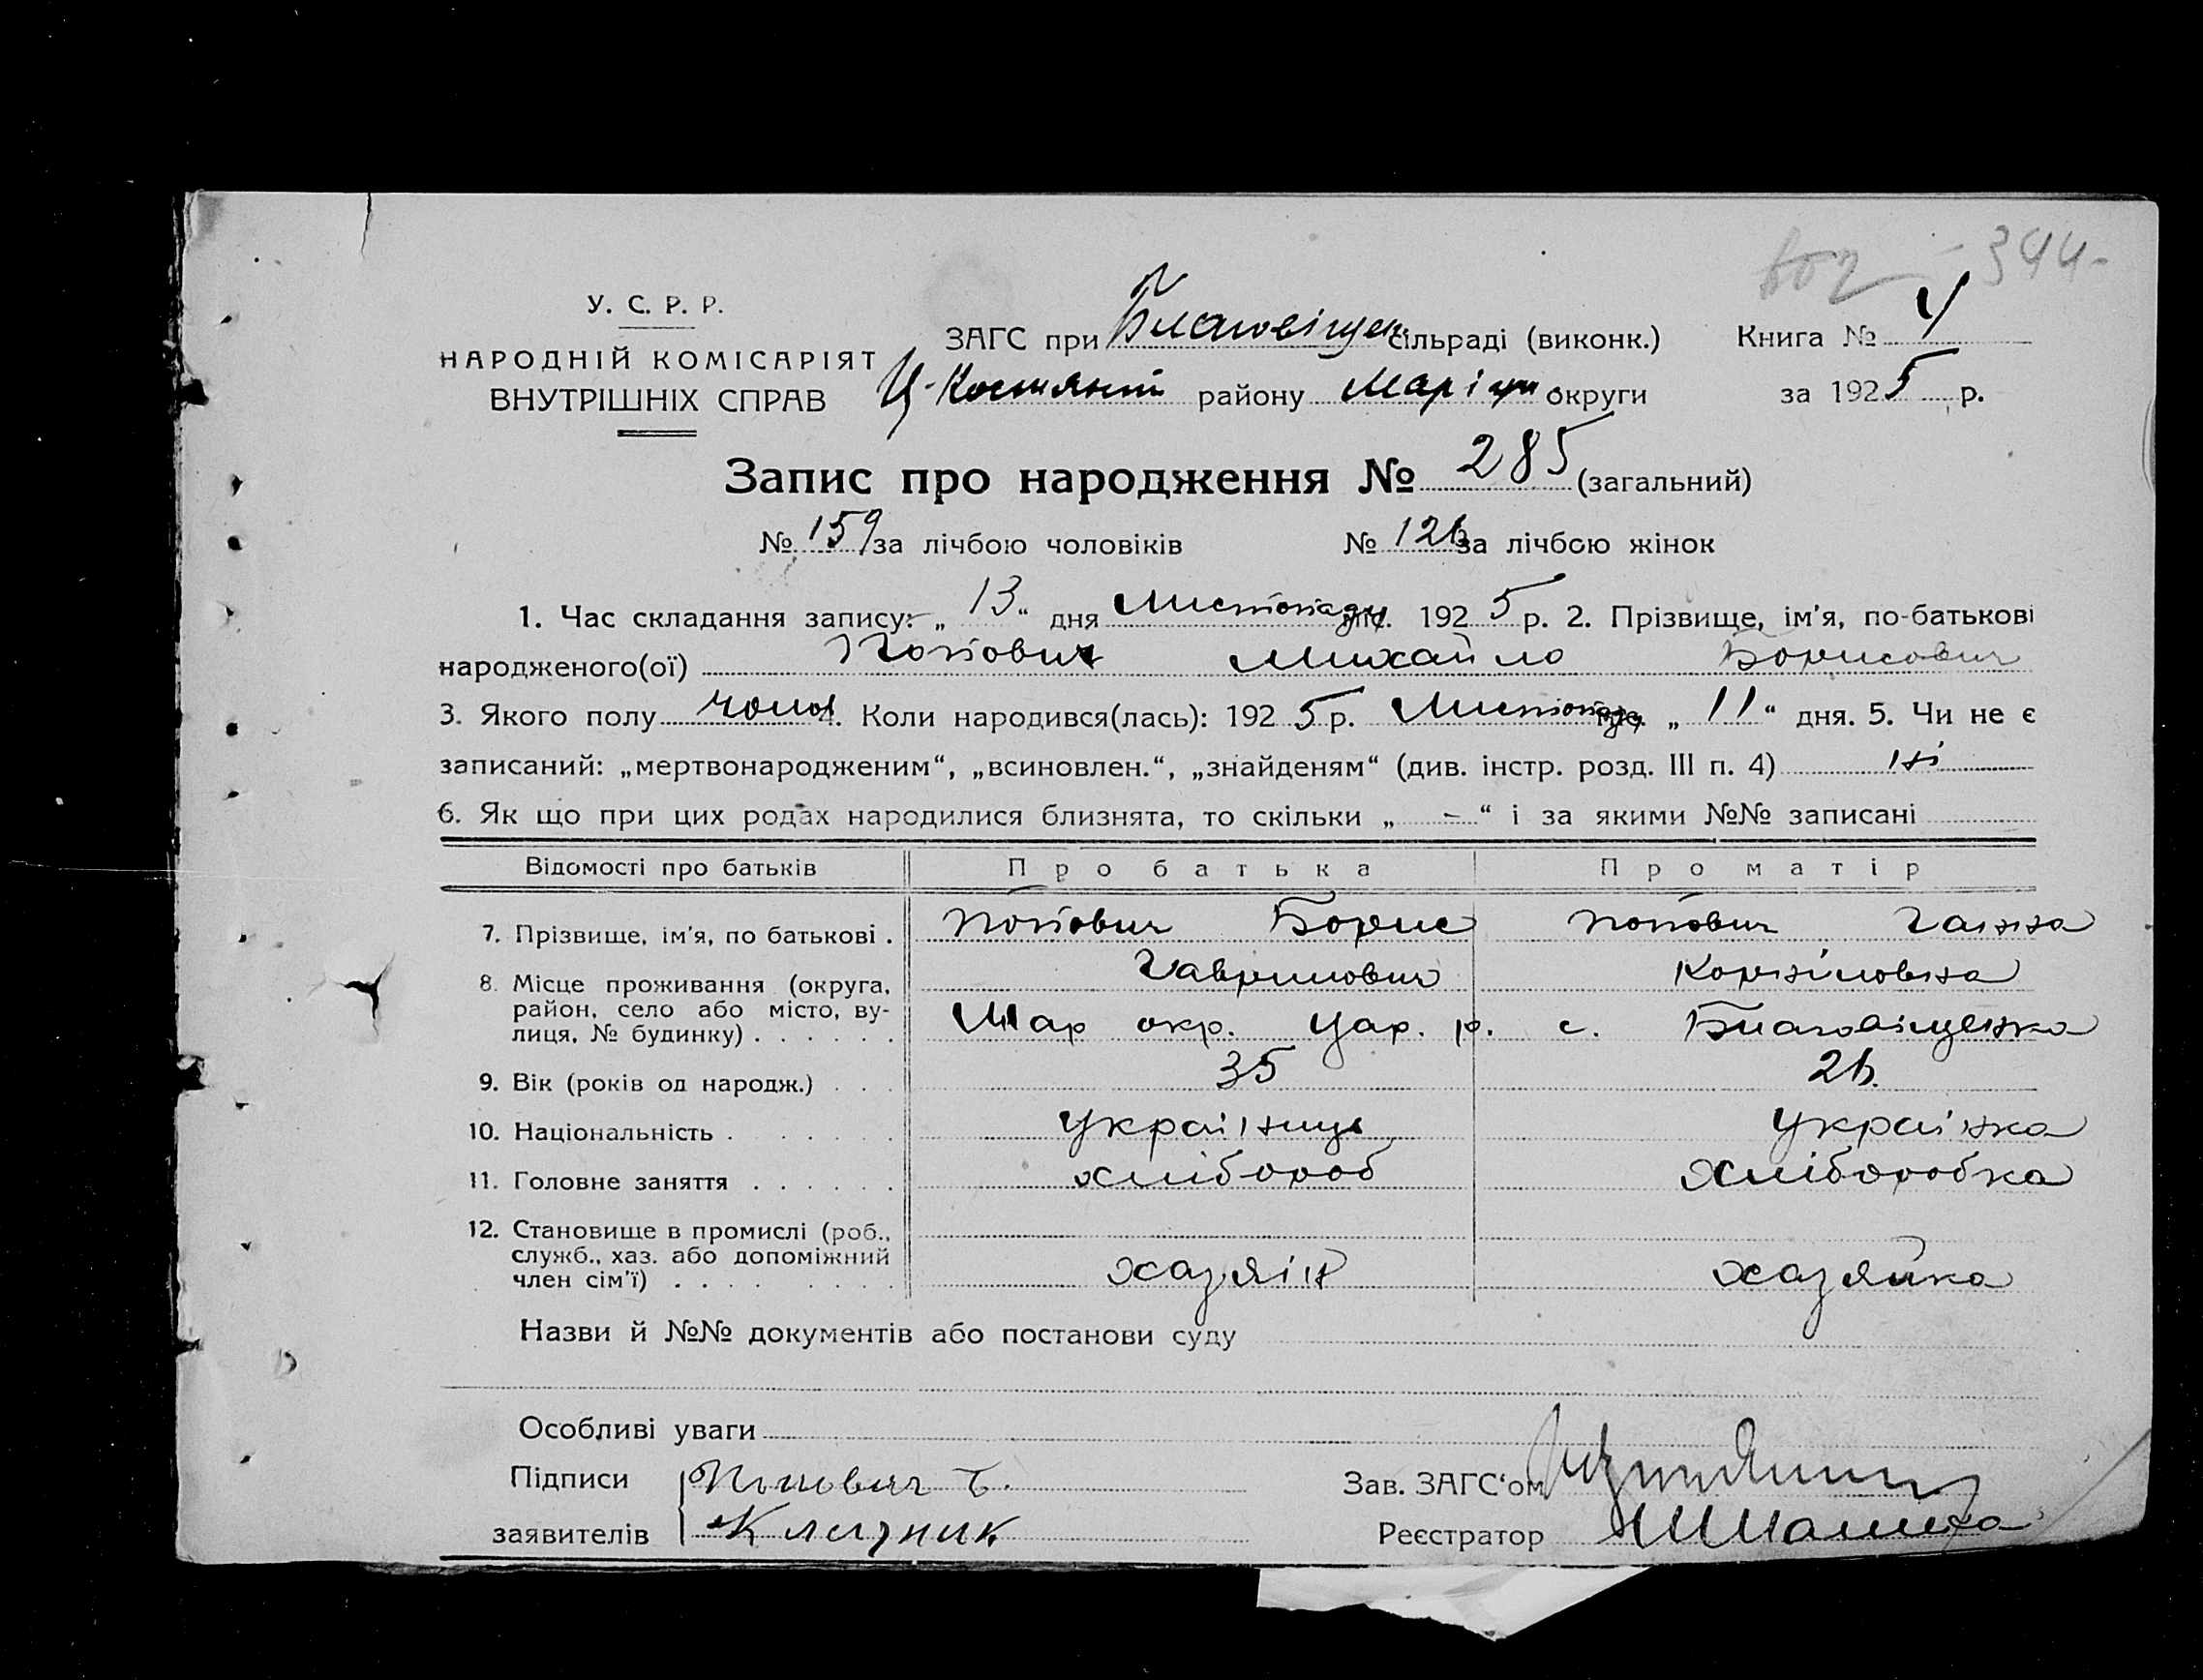 - 344 -
У. С. Р. Р.
НАРОДНІЙ КОМІСАРІЯТ
ВНУТРІШНІХ СПРАВ
ЗАГС при Благовіщен. сільраді (виконк.) Книга № 4
Ц-Костянт району Маріуп округи за 1925 р.
Запис про народження № 285 (загальний)
№ 159 за лічбою чоловіків № 126 за лічбою жінок
1. Час складання запису: „ 13 “ дня Листопаду міс. 1925 р. 2. Прізвище, ім'я, по-батькові
народженого(ої) Попович Михайло Борисович
3. Якого полу чолов 4. Коли народився(лась): 1925 р. Листопаду міс. „ 11 “ дня. 5. Чи не є
записаний: „мертвонародженим“, „всиновлен.“, „знайденям“ (див. інстр. розд. III п. 4) ні
6. Як що при цих родах народилися близнята, то скільки „ - “ і за якими №№ записані
Відомості про батьків Про батька Про матір
7. Прізвище, ім'я, по батькові . Попович Борис Попович Ганна
Гаврилович Корніловна
8. Місце проживання (округа,
район, село або місто, ву-
лиця, № будинку) . . . . . . Мар окр. Цар. р. с. Благовіщенка
9. Вік (років од народж.) . . . 35 26.
10. Національність . . . . . . . українць українка
11. Головне заняття . . . . . . хлібороб хліборобка
12. Становище в промислі (роб.,
служб., хаз. або допоміжний
член сім'ї) . . . . . . . . хазяін хазяйка
Назви й №№ документів або постанови суду
Особливі уваги
Підписи Попович Б. Зав. ЗАГС'ом
заявителів Реєстратор